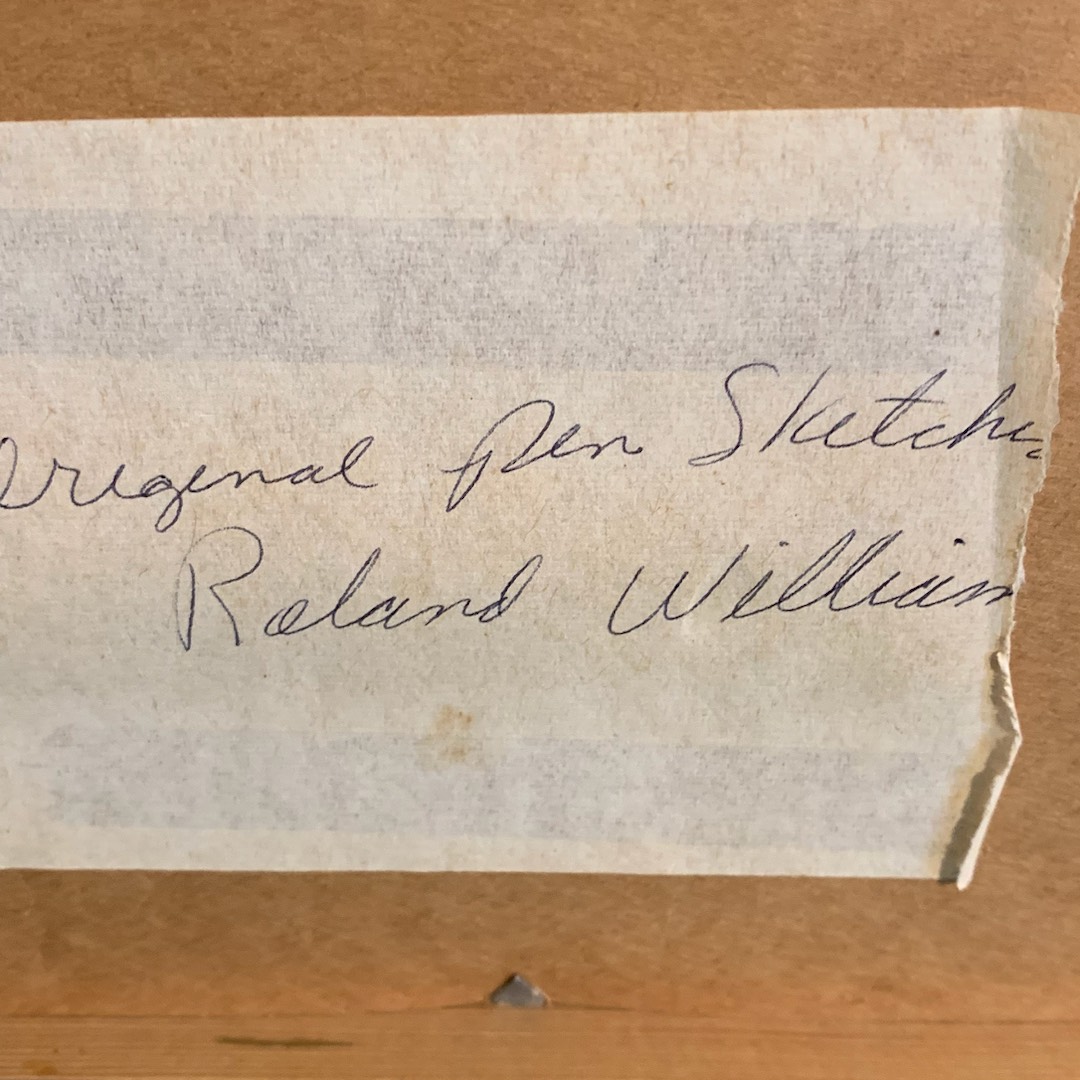 Original Pen Sketch
Roland William